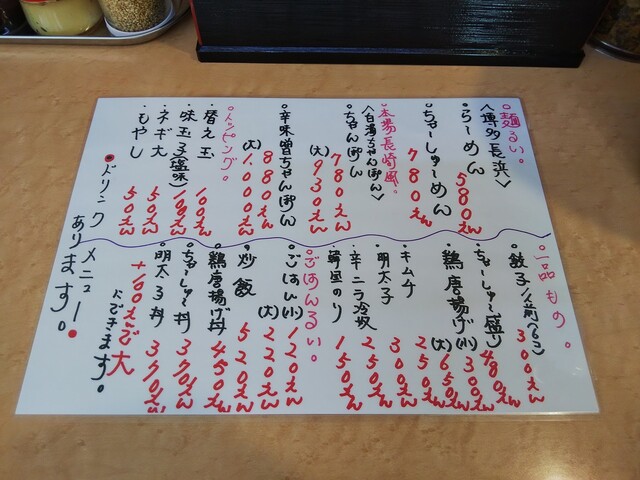 ○麺るい。
〈博多長浜〉
らーめん 580えん
ちゃーしゅーめん 780えん
○本場長崎風。
〈白湯ちゃんぽん〉
ちゃんぽん 780えん
(大) 930えん
辛味噌ちゃんぽん 880えん
(大) 1,000えん
○トッピング。
・替え玉 100えん
・味玉子(塩味) 100えん
・ネギ大 50えん
・もやし 50えん
○一品もの。
・餃子1人前(6コ) 300えん
・ちゃーしゅー盛り 480えん
・鶏唐揚げ(小) 300えん
(大) 650えん
・キムチ 250えん
・明太子 300えん
・辛ニラ冷奴 250えん
・韓国のり 150えん
○ごはんるい。
・ごはん(小) 120えん
(大) 220えん
・炒飯 520えん
・鶏唐揚げ丼 450えん
・ちゃーしゅー丼 370えん
・明太子丼 370えん
+100えんで大
にできます。
●ドリンクメニュー●
あります。